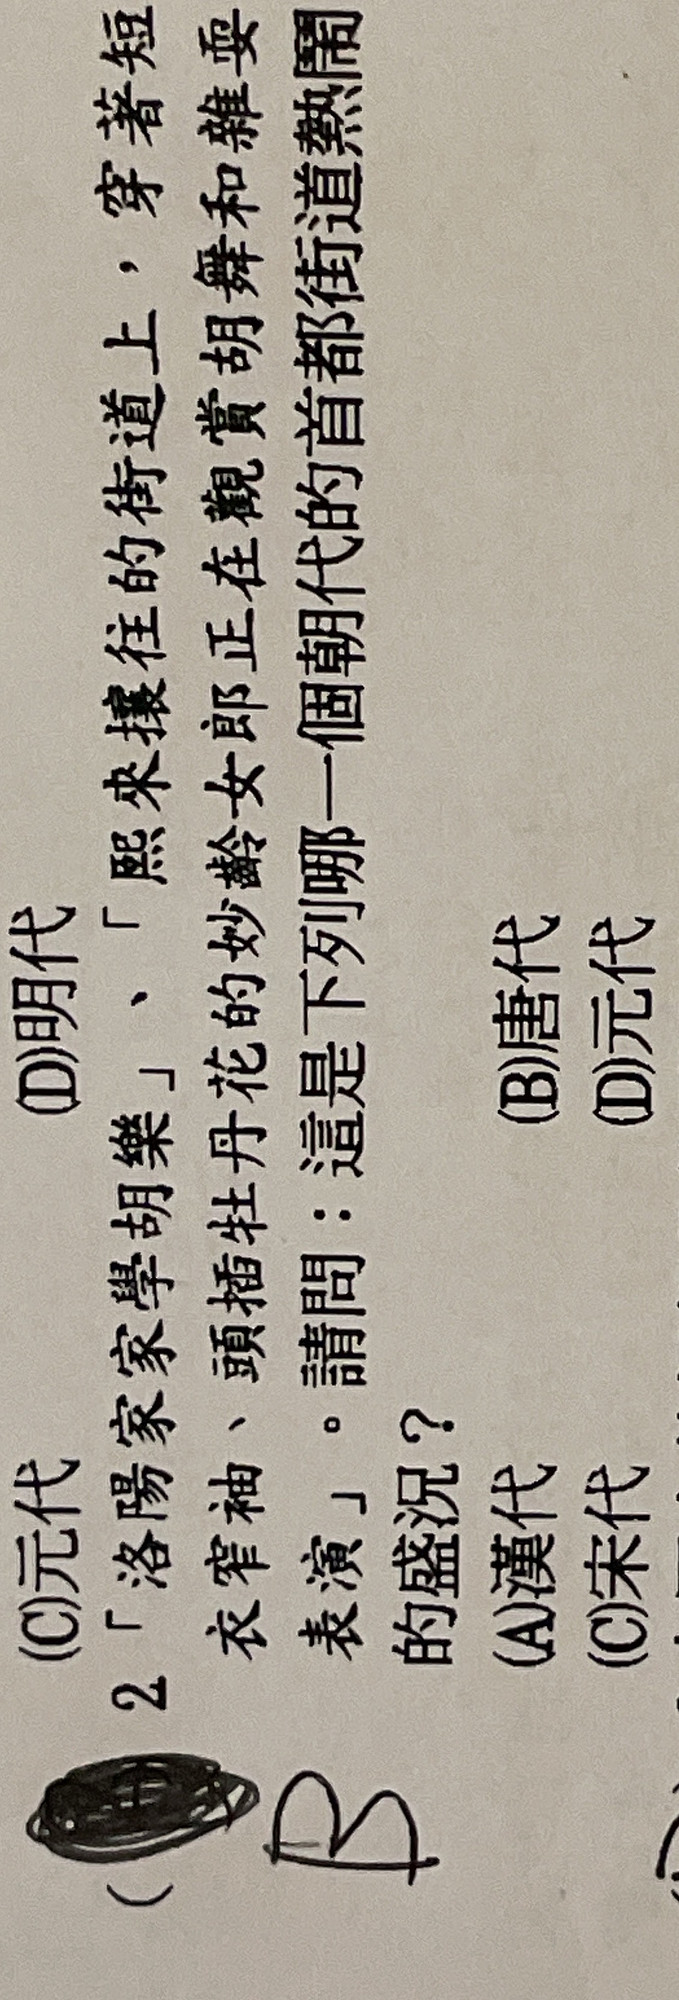 (C)元代 (D)明代
( 2 「洛陽家家學胡樂」、「熙來攘往的街道上，穿著短
衣窄袖、頭插牡丹花的妙齡女郎正在觀賞胡舞和雜耍
表演」。請問：這是下列哪一個朝代的首都街道熱鬧
的盛況？
B
(A)漢代 (B)唐代
(C)宋代 (D)元代